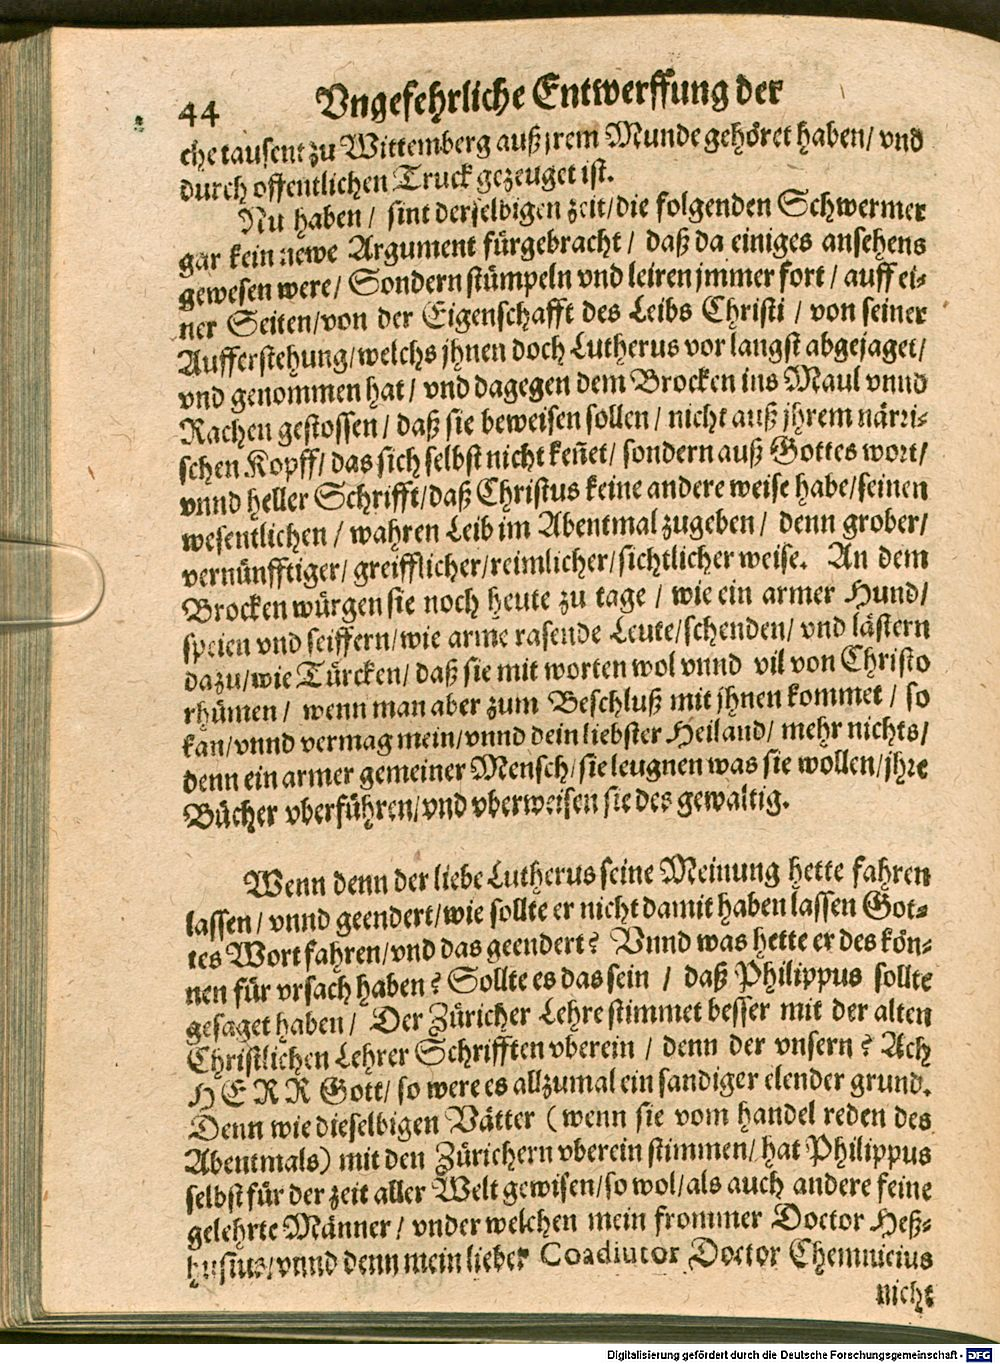 44 Vngefehrliche Entwerffung der
che tausent zu Wittemberg auß jrem Munde gehöret haben/ vnd
durch offentlichen Truck gezeuget ist.
Nu haben / sint derselbigen zeit/die folgenden Schwermer
gar kein newe Argument fürgebracht / daß da einiges ansehens
gewesen were/ Sondern stümpeln vnd leiren jmmer fort / auff ei-
ner Seiten/von der Eigenschafft des Leibs Christi / von seiner
Aufferstehung/welchs jhnen doch Lutherus vor langst abgejaget/
vnd genommen hat/ vnd dagegen dem Brocken ins Maul vnnd
Rachen gestossen/ daß sie beweisen sollen/ nicht auß jhrem närri-
schen Kopff/ das sich selbst nicht keñet/ sondern auß Gottes wort/
vnnd heller Schrifft/daß Christus keine andere weise habe/seinen
wesentlichen / wahren Leib im Abentmal zugeben / denn grober/
vernünfftiger/ greifflicher/reimlicher/sichtlicher weise. An dem
Brocken würgen sie noch heute zu tage / wie ein armer Hund/
speien vnd seiffern/wie arme rasende Leute/schenden/ vnd lästern
dazu/wie Türcken/ daß sie mit worten wol vnnd vil von Christo
rhümen / wenn man aber zum Beschluß mit jhnen kommet / so
kan/vnnd vermag mein/vnnd dein liebster Heiland/ mehr nichts/
denn ein armer gemeiner Mensch/sie leugnen was sie wollen/jhre
Bücher vberführen/vnd vberweisen sie des gewaltig.
Wenn denn der liebe Lutherus seine Meinung hette fahren
lassen/ vnnd geendert/wie sollte er nicht damit haben lassen Got-
tes Wort fahren/vnd das geendert? Vnnd was hette er des kön-
nen für vrsach haben? Sollte es das sein / daß Philippus sollte
gesaget haben/ Der Züricher Lehre stimmet besser mit der alten
Christlichen Lehrer Schrifften vberein / denn der vnsern? Ach
HERR Gott/ so were es allzumal ein sandiger elender grund.
Denn wie dieselbigen Vätter (wenn sie vom handel reden des
Abentmals) mit den Zürichern vberein stimmen/ hat Philippus
selbst für der zeit aller Welt gewisen/so wol/als auch andere feine
gelehrte Männer/ vnder welchen mein frommer Doctor Heß-
husius/vnnd denn mein lieber Coadiutor Doctor Chemnicius
nicht
Digitalisierung gefördert durch die Deutsche Forschungsgemeinschaft - DFG